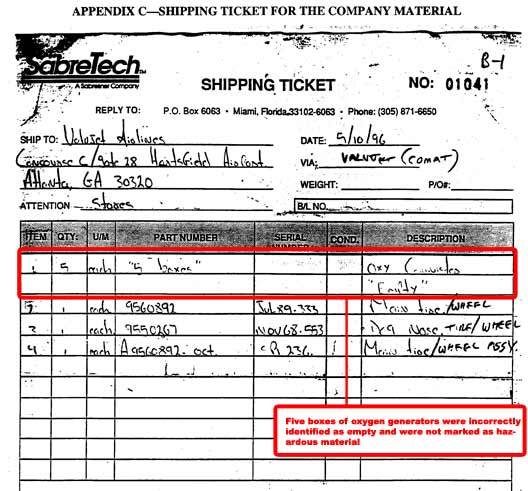 APPENDIX C—SHIPPING TICKET FOR THE COMPANY MATERIAL
B-1
SabreTech
A Sabreliner Company
SHIPPING TICKET
NO: 01041
REPLY TO: P.O. Box 6063 • Miami, Florida 33102-6063 • Phone: (305) 871-6650
SHIP TO: ValuJet Airlines
DATE: 5/10/96
Concourse C/gate 28 Hartsfield Airport
VIA: VALUJET (COMAT)
Atlanta, GA 30320
WEIGHT: P/O#:
ATTENTION Stores
B/L NO.
ITEM QTY: U/M PART NUMBER SERIAL NUMBER COND. DESCRIPTION
1 5 each "5 boxes" Oxy Cannisters
"Empty"
each 9560892 Main tire/WHEEL
3 1 each 9550267 Nose TIRE/WHEEL
4 1 each A9560892 Main tire/WHEEL ASSY.
Five boxes of oxygen generators were incorrectly
identified as empty and were not marked as haz-
ardous material